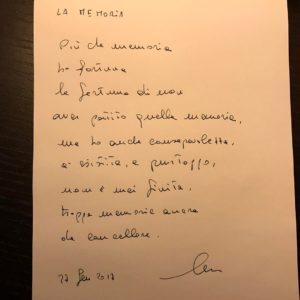 LA MEMORIA
Più che memoria
ho fortuna
la fortuna di non
aver patito quella memoria,
ma ho anche consapevolezza,
è esistita, e purtroppo,
non è mai finita.
troppa memoria ancora
da cancellare.
27 Gen 2017